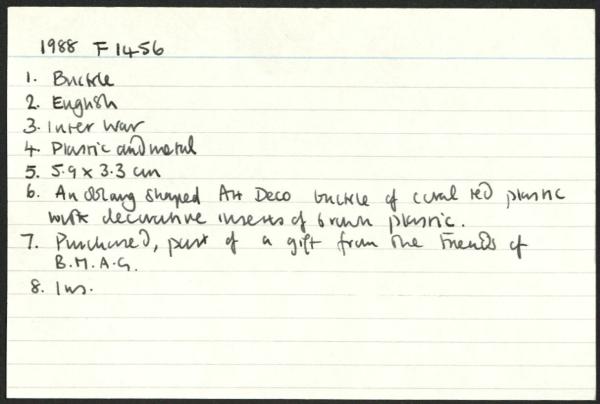 1988 F1456
1. Buckle
2. English
3. Inter War
4. Plastic and metal
5. 5.9 x 3.3 cm
6. An oblong shaped Art Deco buckle of coral red plastic
with decorative inserts of brown plastic.
7. Purchased, part of a gift from the Friends of
B.M.A.G.
8. Ins.